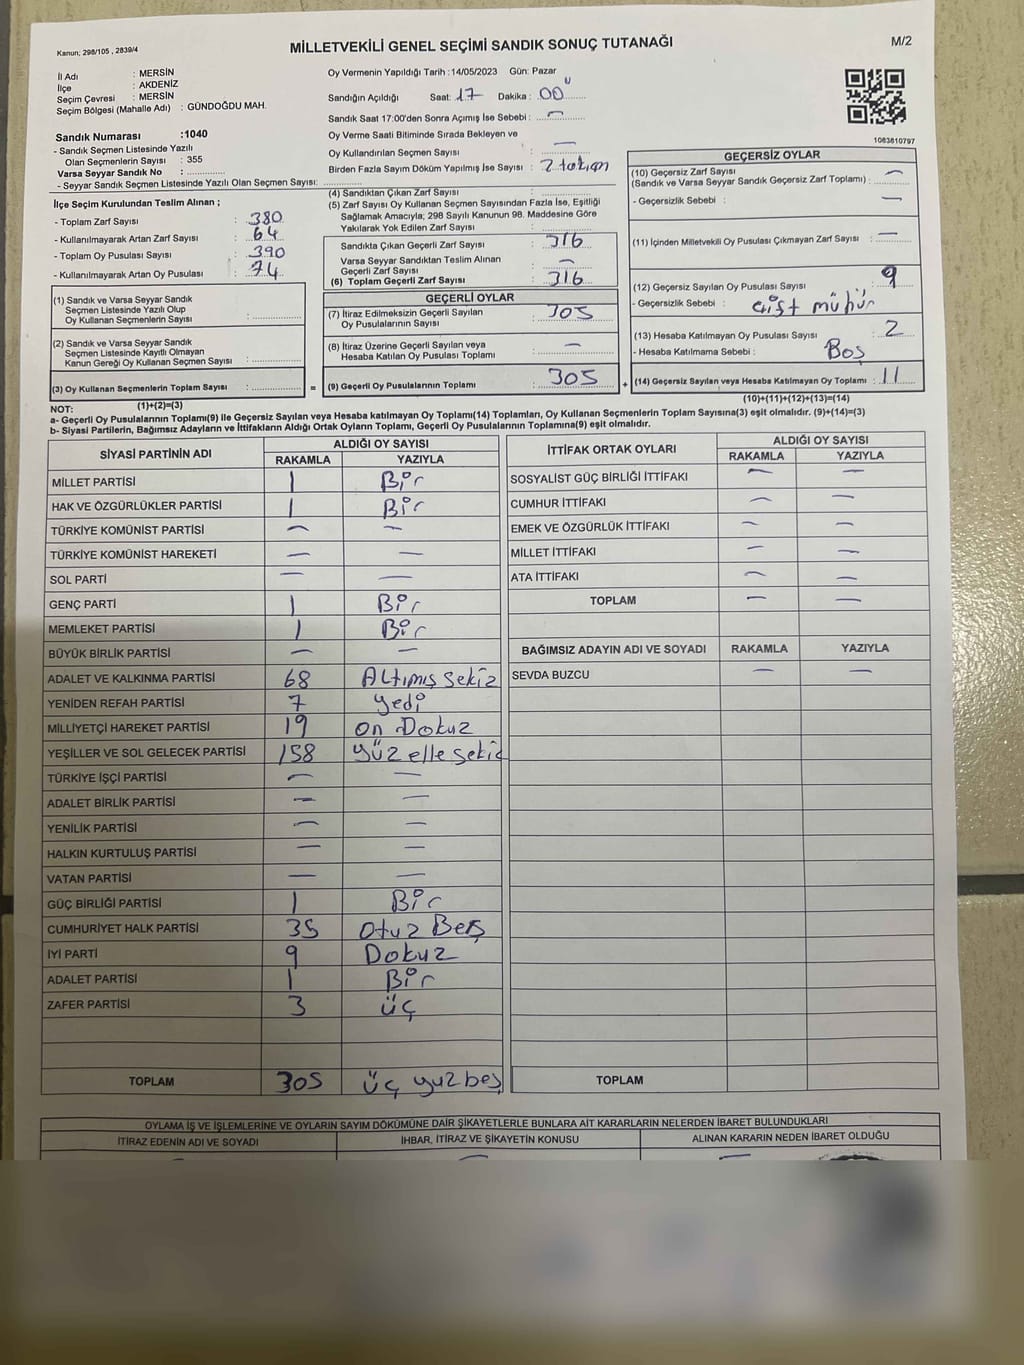 Kanun; 298/105 , 2839/4
MİLLETVEKİLİ GENEL SEÇİMİ SANDIK SONUÇ TUTANAĞI
M/2
İl Adı : MERSİN
İlçe : AKDENİZ
Seçim Çevresi : MERSİN
Seçim Bölgesi (Mahalle Adı) : GÜNDOĞDU MAH.
Sandık Numarası :1040
- Sandık Seçmen Listesinde Yazılı
Olan Seçmenlerin Sayısı : 355
Varsa Seyyar Sandık No : ..............
- Seyyar Sandık Seçmen Listesinde Yazılı Olan Seçmen Sayısı: ..............
Oy Vermenin Yapıldığı Tarih :14/05/2023 Gün: Pazar
Sandığın Açıldığı Saat: 17 Dakika : 00
Sandık Saat 17:00'den Sonra Açımış İse Sebebi : —
Oy Verme Saati Bitiminde Sırada Bekleyen ve
Oy Kullandırılan Seçmen Sayısı : —
Birden Fazla Sayım Döküm Yapılmış İse Sayısı : 2 takım
1083610797
İlçe Seçim Kurulundan Teslim Alınan ;
- Toplam Zarf Sayısı : 380
- Kullanılmayarak Artan Zarf Sayısı : 64
- Toplam Oy Pusulası Sayısı : 390
- Kullanılmayarak Artan Oy Pusulası : 74
(1) Sandık ve Varsa Seyyar Sandık
Seçmen Listesinde Yazılı Olup
Oy Kullanan Seçmenlerin Sayısı : ..............
(2) Sandık ve Varsa Seyyar Sandık
Seçmen Listesinde Kayıtlı Olmayan
Kanun Gereği Oy Kullanan Seçmen Sayısı : ..............
(3) Oy Kullanan Seçmenlerin Toplam Sayısı : ..............
(1)+(2)=(3)
(4) Sandıktan Çıkan Zarf Sayısı : ..............
(5) Zarf Sayısı Oy Kullanan Seçmen Sayısından Fazla İse, Eşitliği
Sağlamak Amacıyla; 298 Sayılı Kanunun 98. Maddesine Göre
Yakılarak Yok Edilen Zarf Sayısı : ..............
Sandıkta Çıkan Geçerli Zarf Sayısı : 316
Varsa Seyyar Sandıktan Teslim Alınan
Geçerli Zarf Sayısı : —
(6) Toplam Geçerli Zarf Sayısı : 316
GEÇERLİ OYLAR
(7) İtiraz Edilmeksizin Geçerli Sayılan
Oy Pusulalarının Sayısı : 305
(8) İtiraz Üzerine Geçerli Sayılan veya
Hesaba Katılan Oy Pusulası Toplamı : —
= (9) Geçerli Oy Pusulalarının Toplamı : 305 +
GEÇERSİZ OYLAR
(10) Geçersiz Zarf Sayısı
(Sandık ve Varsa Seyyar Sandık Geçersiz Zarf Toplamı) : —
- Geçersizlik Sebebi : —
(11) İçinden Milletvekili Oy Pusulası Çıkmayan Zarf Sayısı : —
(12) Geçersiz Sayılan Oy Pusulası Sayısı : 9
- Geçersizlik Sebebi : Çift mühür
(13) Hesaba Katılmayan Oy Pusulası Sayısı : 2
- Hesaba Katılmama Sebebi : Boş
(14) Geçersiz Sayılan veya Hesaba Katılmayan Oy Toplamı : 11
(10)+(11)+(12)+(13)=(14)
NOT:
a- Geçerli Oy Pusulalarının Toplamı(9) ile Geçersiz Sayılan veya Hesaba katılmayan Oy Toplamı(14) Toplamları, Oy Kullanan Seçmenlerin Toplam Sayısına(3) eşit olmalıdır. (9)+(14)=(3)
b- Siyasi Partilerin, Bağımsız Adayların ve İttifakların Aldığı Ortak Oyların Toplamı, Geçerli Oy Pusulalarının Toplamına(9) eşit olmalıdır.
SİYASİ PARTİNİN ADI ALDIĞI OY SAYISI
RAKAMLA YAZIYLA
MİLLET PARTİSİ 1 Bir
HAK VE ÖZGÜRLÜKLER PARTİSİ 1 Bir
TÜRKİYE KOMÜNİST PARTİSİ — —
TÜRKİYE KOMÜNİST HAREKETİ — —
SOL PARTİ — —
GENÇ PARTİ 1 Bir
MEMLEKET PARTİSİ 1 Bir
BÜYÜK BİRLİK PARTİSİ — —
ADALET VE KALKINMA PARTİSİ 68 Altımış sekiz
YENİDEN REFAH PARTİSİ 7 yedi
MİLLİYETÇİ HAREKET PARTİSİ 19 on Dokuz
YEŞİLLER VE SOL GELECEK PARTİSİ 158 yüz elle sekiz
TÜRKİYE İŞÇİ PARTİSİ — —
ADALET BİRLİK PARTİSİ — —
YENİLİK PARTİSİ — —
HALKIN KURTULUŞ PARTİSİ — —
VATAN PARTİSİ — —
GÜÇ BİRLİĞİ PARTİSİ 1 Bir
CUMHURİYET HALK PARTİSİ 35 Otuz Beş
İYİ PARTİ 9 Dokuz
ADALET PARTİSİ 1 Bir
ZAFER PARTİSİ 3 üç
TOPLAM 305 üç yuz beş
İTTİFAK ORTAK OYLARI ALDIĞI OY SAYISI
RAKAMLA YAZIYLA
SOSYALİST GÜÇ BİRLİĞİ İTTİFAKI — —
CUMHUR İTTİFAKI — —
EMEK VE ÖZGÜRLÜK İTTİFAKI — —
MİLLET İTTİFAKI — —
ATA İTTİFAKI — —
TOPLAM — —
BAĞIMSIZ ADAYIN ADI VE SOYADI RAKAMLA YAZIYLA
SEVDA BUZCU — —
TOPLAM
OYLAMA İŞ VE İŞLEMLERİNE VE OYLARIN SAYIM DÖKÜMÜNE DAİR ŞİKAYETLERLE BUNLARA AİT KARARLARIN NELERDEN İBARET BULUNDUKLARI
İTİRAZ EDENİN ADI VE SOYADI İHBAR, İTİRAZ VE ŞİKAYETİN KONUSU ALINAN KARARIN NEDEN İBARET OLDUĞU